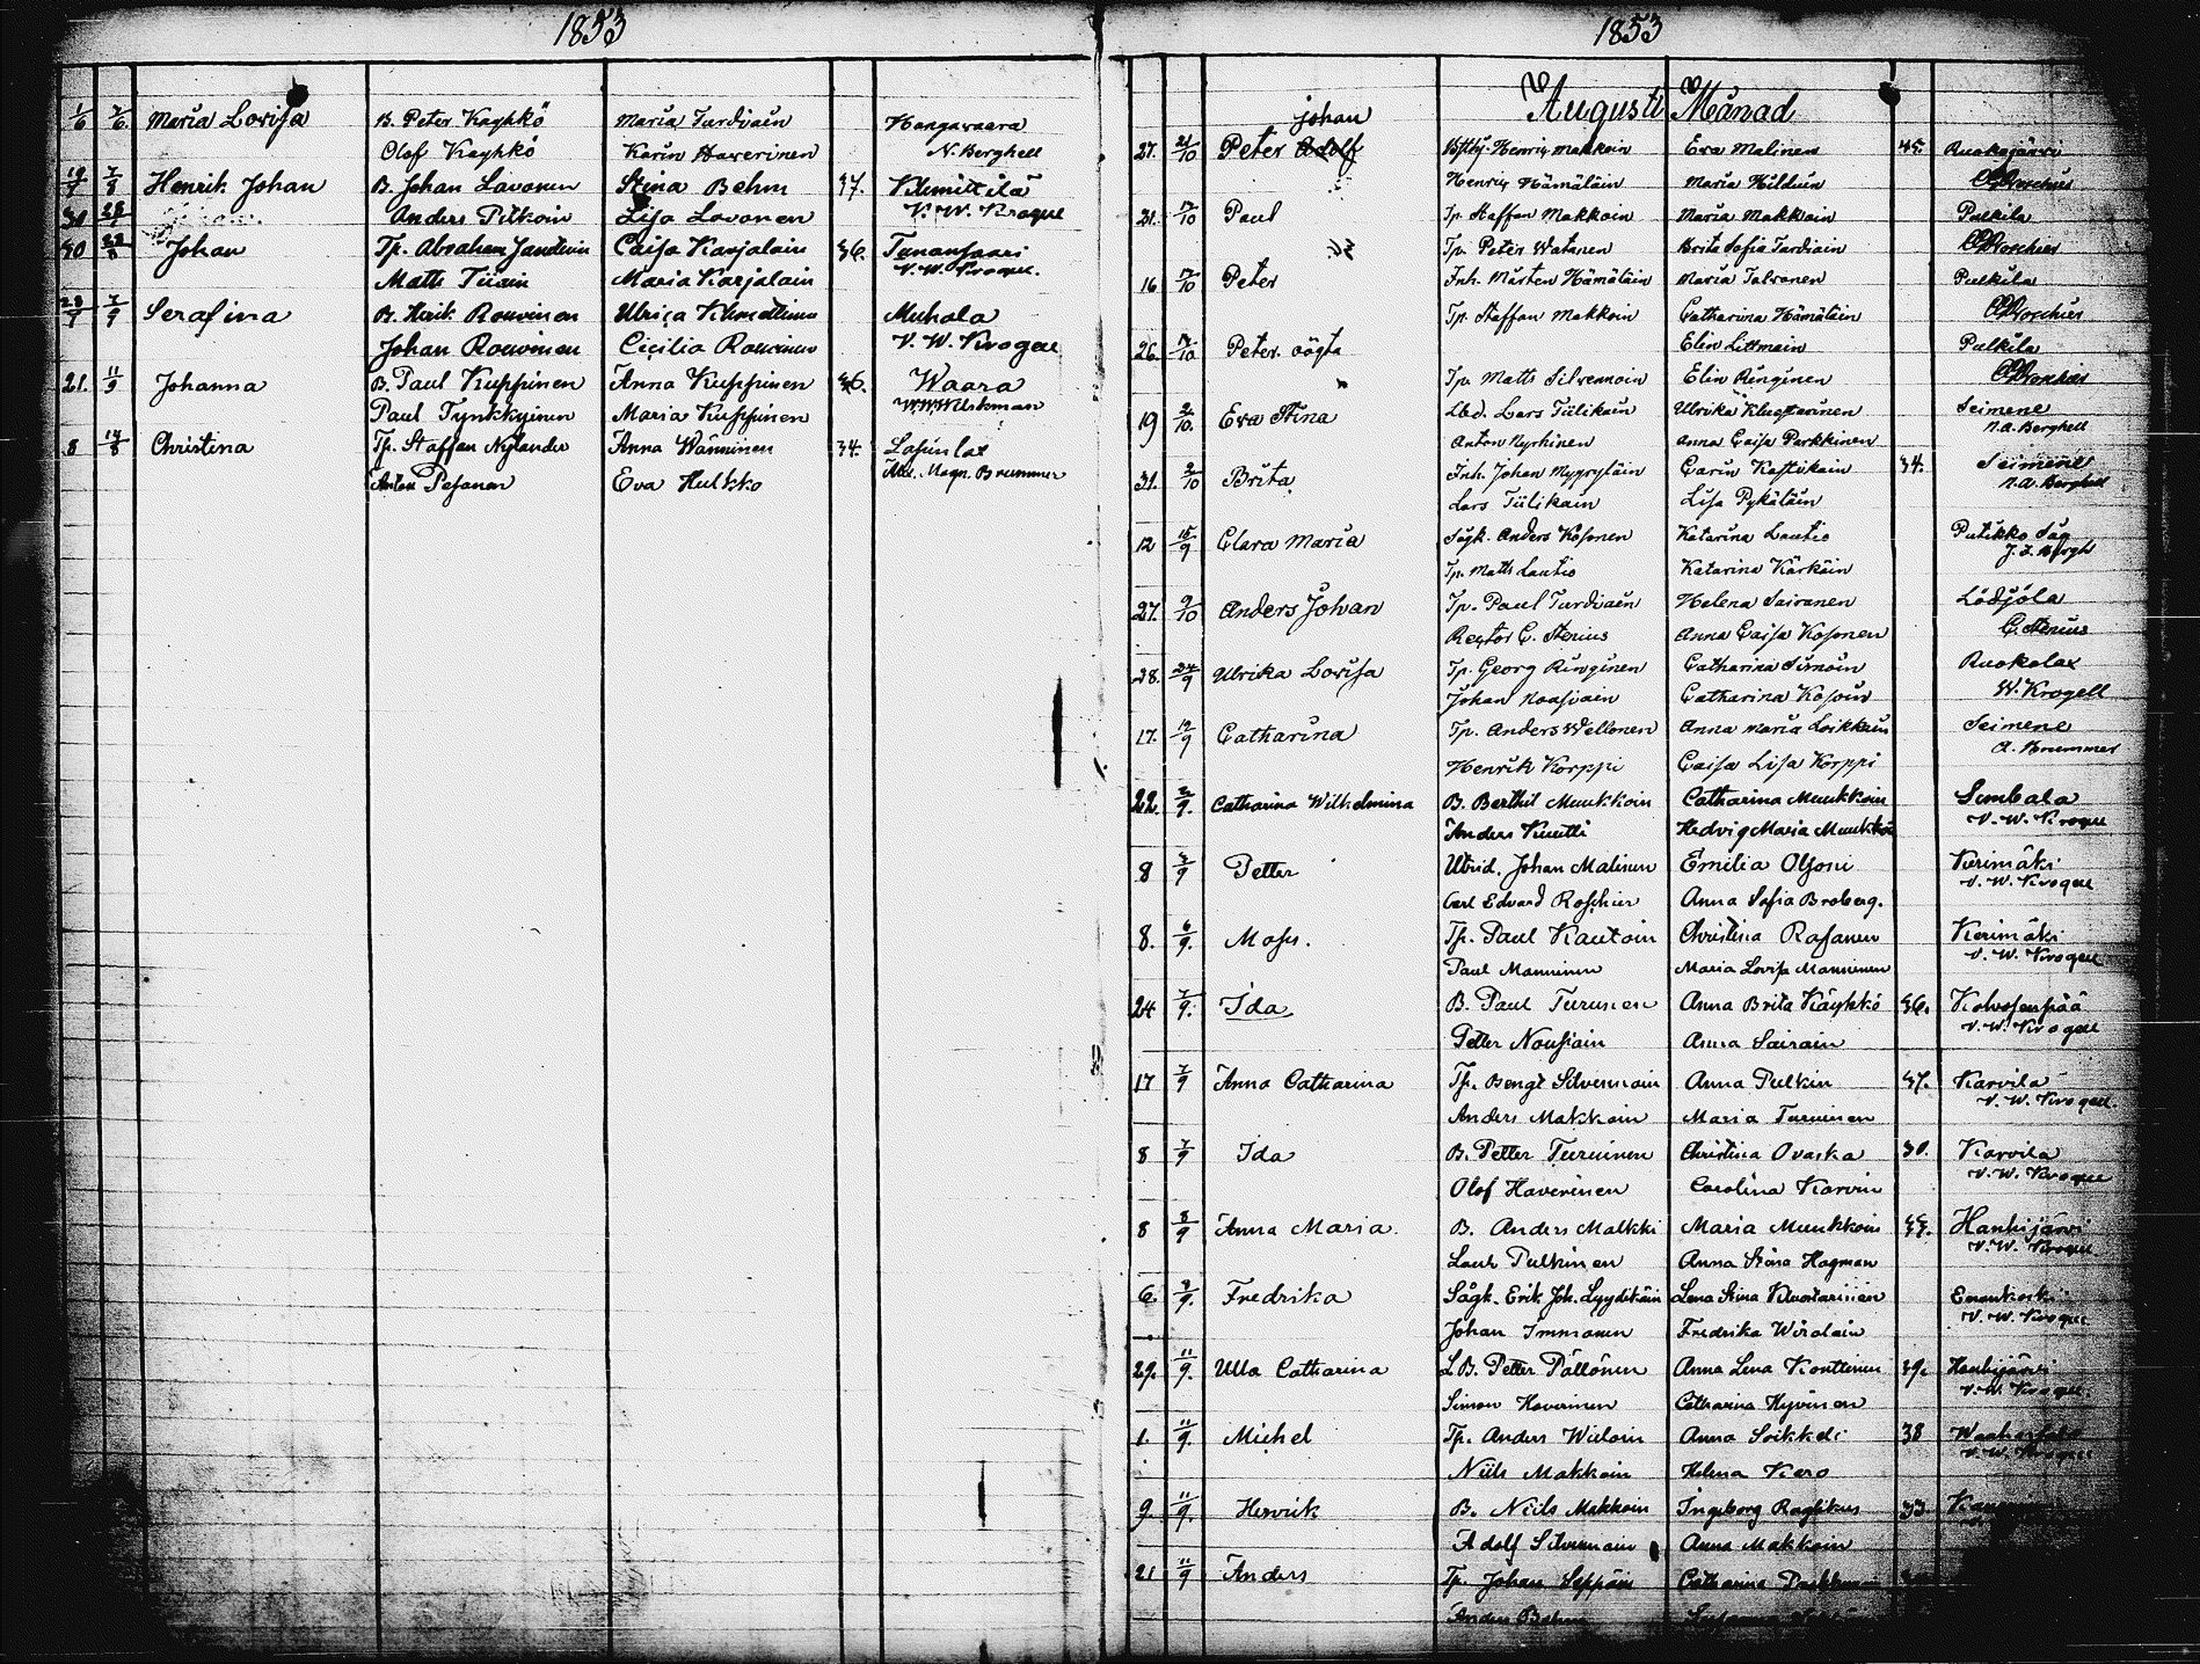 1853
1/6 7/6 Maria Lovisa B. Peter Kayhkö Maria Turdiain Hangawaara
Olof Kayhkö Karin Haverinen N. Berghell
19/7 7/8 Henrik Johan B. Johan Lavonen Stina Behm 37. KLmittilä
30 28 Anders Pitkoin Lisa Lavonen V. W. Krogell
30 22/8 Johan Tp. Abraham Caisa Karjalain 36. Tananfaari
Matts Tiiain Maria Karjalain V. W. Krogell.
23/7 7/9 Serafina B. Henrik Rouvinen Ulrica Muhola
Johan Rouvinen Cicilia Rouvinen V. W. Krogell
21. 11/9 Johanna B. Paul Kuppinen Anna Kuppinen 36. Waara
Paul Tynkkyinen Maria Kuppinen W. W. Wilskman
8 14/8 Christina Tp. Staffan Nylander Anna Wänninen 34. Lasinlax
Anton Pesanen Eva Hulkko Magn. Brummer
1853
Augusti Månad
johan
27. 21/10 Peter Adolf Henrig Makkoin Eva Malinen 45. Ruokojärvi
Henrig Hämäläin Maria Hilduin
31. 17/10 Paul Tp. Staffan Makkoin Maria Makkoin Pulkila
Tp. Peter Watanen Brita Sofia Turdiain
16 17/10 Peter Inh. Mårten Hämäläin Maria Talvanen Pulkila
Tp. Staffan Makkoin Catharina Hämäläin
26. 17/10 Peter. oägta Elin Littmain Pulkila
Tp. Matts Silvennoin Elin Ringinen
19 2/10. Eva Stina Lbd. Lars Tiilikain Ulrika Kluqtarinen Seimene
Anton Nyrhinen Anna Caisa Parkkinen N. A. Berghell
31. 2/10 Brita Inh. Johan Mygrytäin Carin Kaftikain 34. Seimene
Lars Tiilikain Lisa Pykäläin N. A. Berghell
12 15/9 Clara Maria Sågk. Anders Kosonen Katarina Lautio Putikko Såg
Tp. Matts Lautio Katarina Kärkäin
27. 9/10 Anders Johan Tp. Paul Turdiain Helena Sairanen Lödjöla
Rector C. Stenius Anna Caisa Kosonen C. Stenius
28. 24/9 Ulrika Lovisa Tp. Georg Ringinen Catharina Simoin Ruokolax
Johan Noasiain Catharina Kosoin W. Krogell
17. 19/9 Catharina Tp. Anders Wellonen Anna Maria Loikkain Seimene
Henrik Korppi Caisa Lisa Korppi A. Brummer
22. 2/9. Catharina Wilhelmina B. Berthil Muukkoin Catharina Muukkoin Simbala
Anders Kuutti Hedvig Maria Muukkoi V. W. Krogell
8 3/9 Petter Johan Malinen Emilia Olsoni Kerimäki
Carl Edvard Roschier Anna Sofia Broberg. V. W. Krogell
8. 6/9. Moses. Tp. Paul Kautoin Christina Rasanen Kerimäki
Paul Manninen Maria Lovisa Manninen V. W. Krogell
24 7/9. Ida B. Paul Turunen Anna Brita Käyhkö 36. Kolvosenpää
Petter Nousiain Anna Sairain V. W. Krogell
17 7/9 Anna Catharina Tp. Bengt Silvennoin Anna Pulkin 37. Karvila
Anders Makkoin Maria Turuinen V. W. Krogell.
8 7/9 Ida B. Petter Turuinen Christina Ovaska 30. Karvila
Olof Haverinen Carolina Karvin V. W. Krogell
8 8/9 Anna Maria. B. Anders Malkki Maria Muukkoin 45. Hanhijärvi
Lauk Pulkinen Anna Stina Hagman V. W. Krogell
6. 8/9. Fredrika Sågk. Erik Joh. Lyydikäin Lena Stina Kluutarinen Enonkoski
Johan Immonen Fredrika Wiralain V. W. Krogell
29. 11/9. Ulla Catharina L. B. Petter Pällönen Anna Lena Konttinen 39. Hanhijärvi
Simon Haverinen Catharina Hyvönen V. W. Krogell.
1. 11/9. Michel Tp. Anders Wiiloin Anna Soikkeli 38
Niils Makkoin Helena Kero V. W. Krogell
9. 11/9. Henrik B. Niils Makkoin Ingeborg Ragtikus 33
Adolf Silvennoin Anna Makkoin
21 11/9 Anders Tp. Johan Seppäin Catharina
Anders Behm